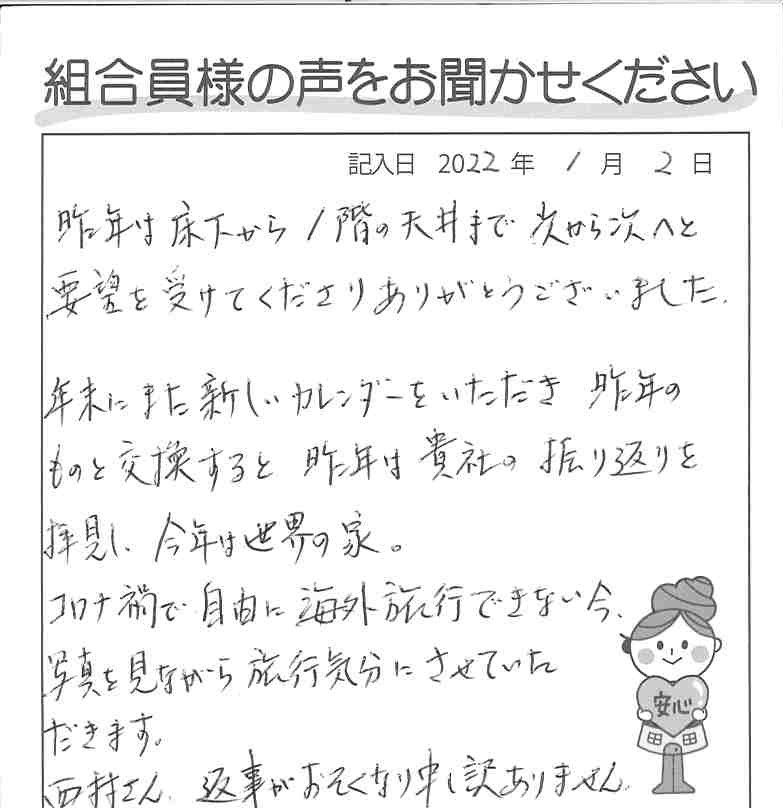 組合員様の声をお聞かせください
記入日 2022 年 1 月 2 日
昨年は床下から1階の天井まで次から次へと
要望を受けてくださりありがとうございました.
年末にまた新しいカレンダーをいただき 昨年の
ものと交換すると 昨年は貴社の振り返りを
拝見し、今年は世界の家。
コロナ禍で自由に海外旅行できない今、
写真を見ながら旅行気分にさせていた
だきます。
安心
西村さん、返事がおそくなり申し訳ありません.